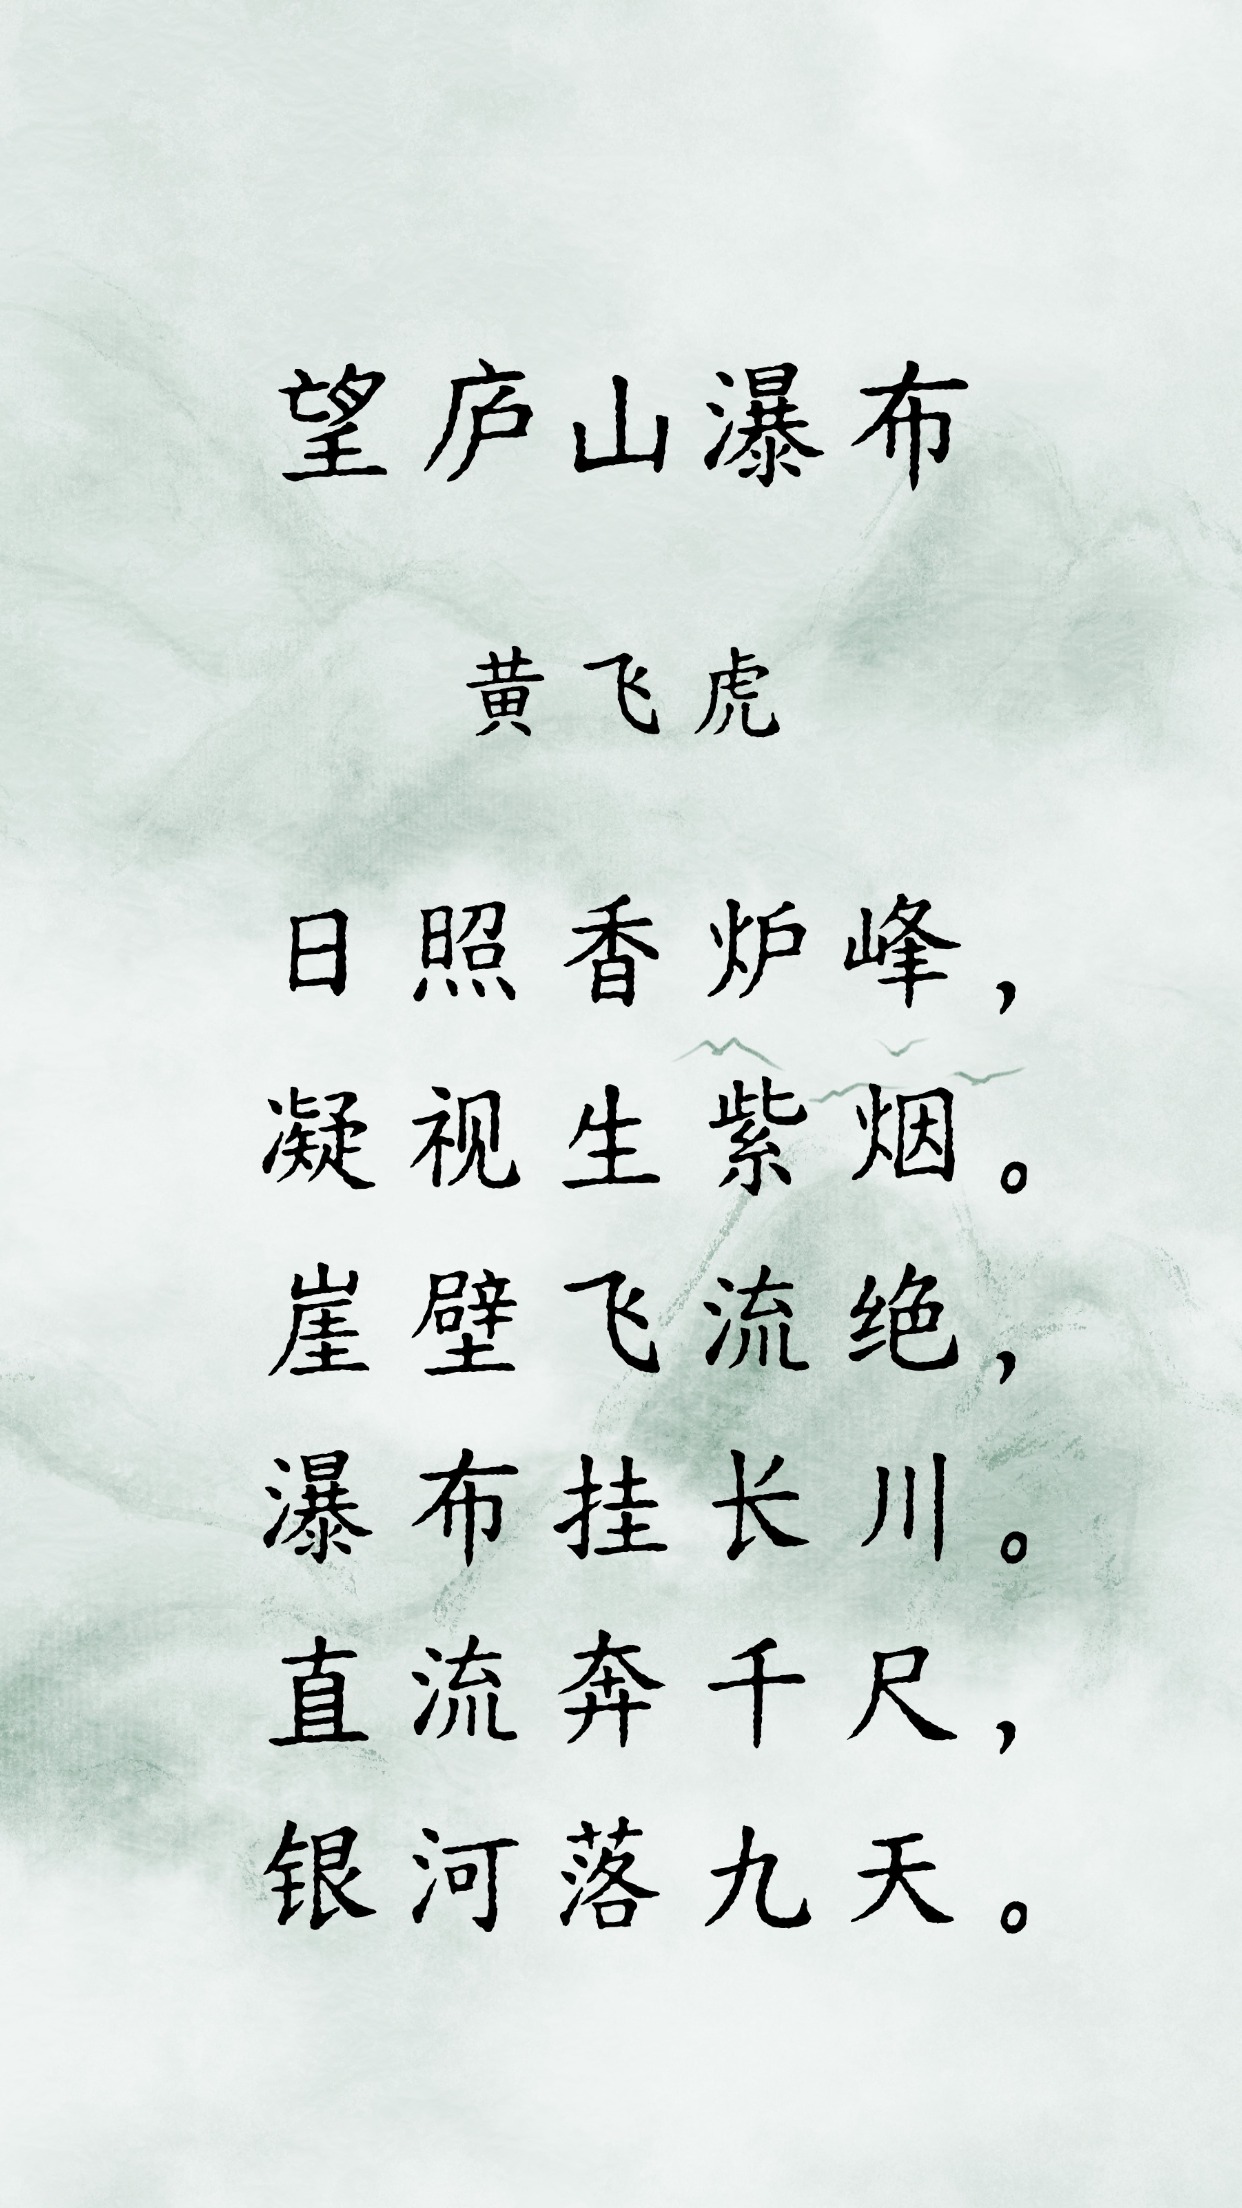 望庐山瀑布
黄飞虎
日照香炉峰，
凝视生紫烟。
崖壁飞流绝，
瀑布挂长川。
直流奔千尺，
银河落九天。